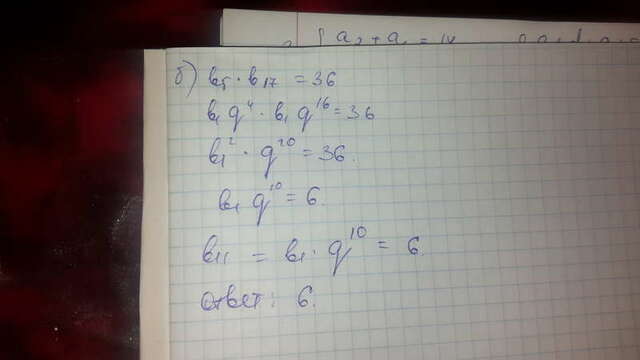 a₂ + a₁ = 14
б) b₅ · b₁₇ = 36
b₁ q⁴ · b₁ q¹⁶ = 36
b₁² · q²⁰ = 36.
b₁ q¹⁰ = 6.
b₁₁ = b₁ · q¹⁰ = 6.
Ответ: 6.